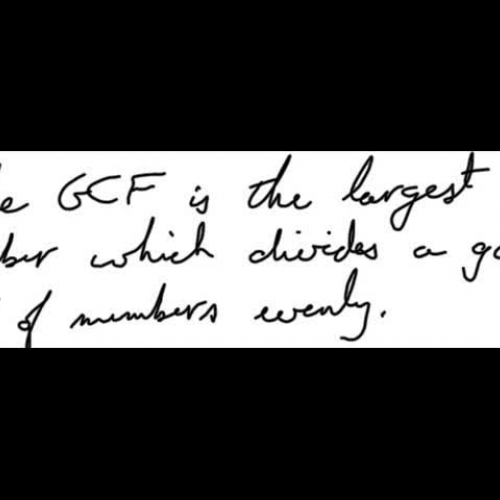 e GCF is the largest
ber which divides a g
of numbers evenly.